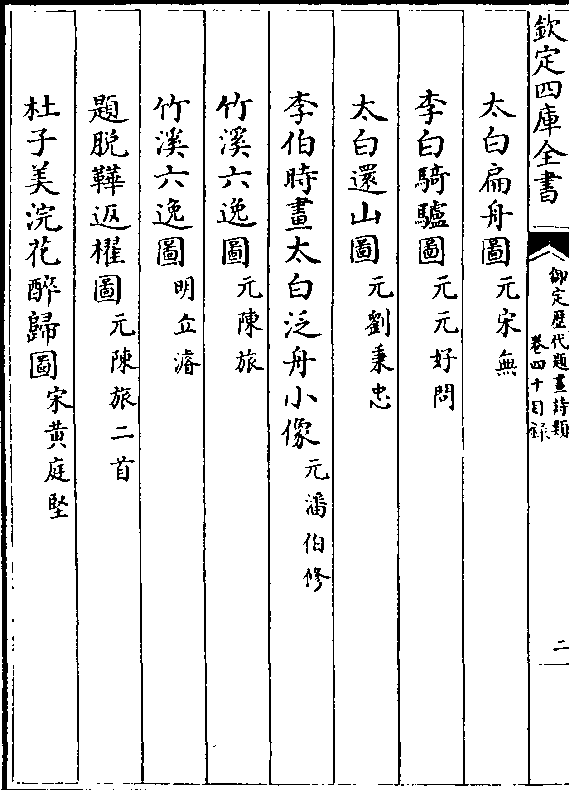 欽定四庫全書
御定歷代題畫詩類
卷四十目錄
二
太白扁舟圖 元宋無
李白騎驢圖 元元好問
太白還山圖 元劉秉忠
李伯時畫太白泛舟小像 元潘伯修
竹溪六逸圖 元陳旅
竹溪六逸圖 明丘濬
題脫鞾返櫂圖 元陳旅二首
杜子美浣花醉歸圖 宋黃庭堅